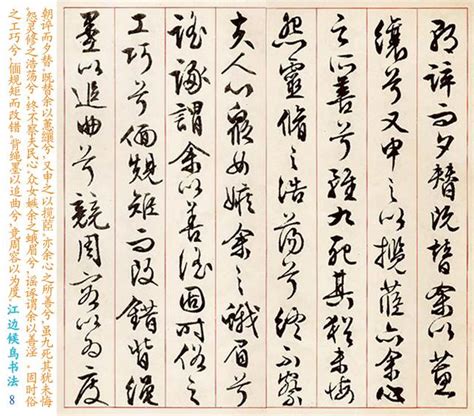 朝誶而夕替既替余以蕙
纕兮又申之以攬茝亦余心
之所善兮雖九死其猶未悔
怨靈脩之浩蕩兮終不察
夫人心眾女嫉余之蛾眉兮
謠諑謂余以善淫固時俗之
工巧兮偭規矩而改錯背繩
墨以追曲兮競周容以為度
朝谇而夕替，既替余以蕙纕兮，又申之以揽茝，亦余心之所善兮，虽九死其犹未悔
怨灵修之浩荡兮，终不察夫民心，众女嫉余之蛾眉兮，谣诼谓余以善淫，固时俗
之工巧兮，偭规矩而改错，背绳墨以追曲兮，竟周容以为度，江边候鸟书法 8